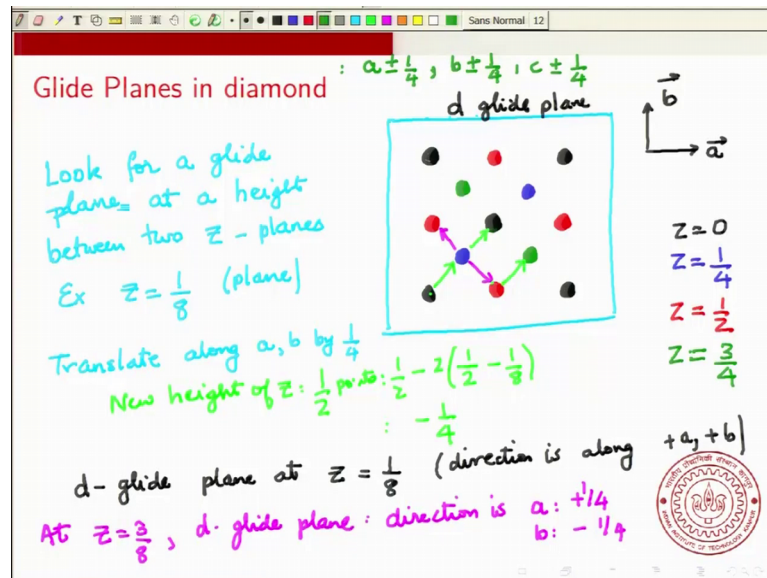 Sans Normal 12
: a ± 1/4 , b ± 1/4 , c ± 1/4
Glide Planes in diamond
d glide plane
b
a
Look for a glide
plane at a height
between two Z - planes
Ex Z = 1/8 (plane)
Z = 0
Z = 1/4
Z = 1/2
Z = 3/4
Translate along a, b by 1/4
New height of Z : 1/2 points : 1/2 - 2(1/2 - 1/8)
: - 1/4
d - glide plane at Z = 1/8 (direction is along +a, +b)
At Z = 3/8 , d - glide plane : direction is a : +1/4
b : - 1/4
INDIAN INSTITUTE OF TECHNOLOGY KANPUR